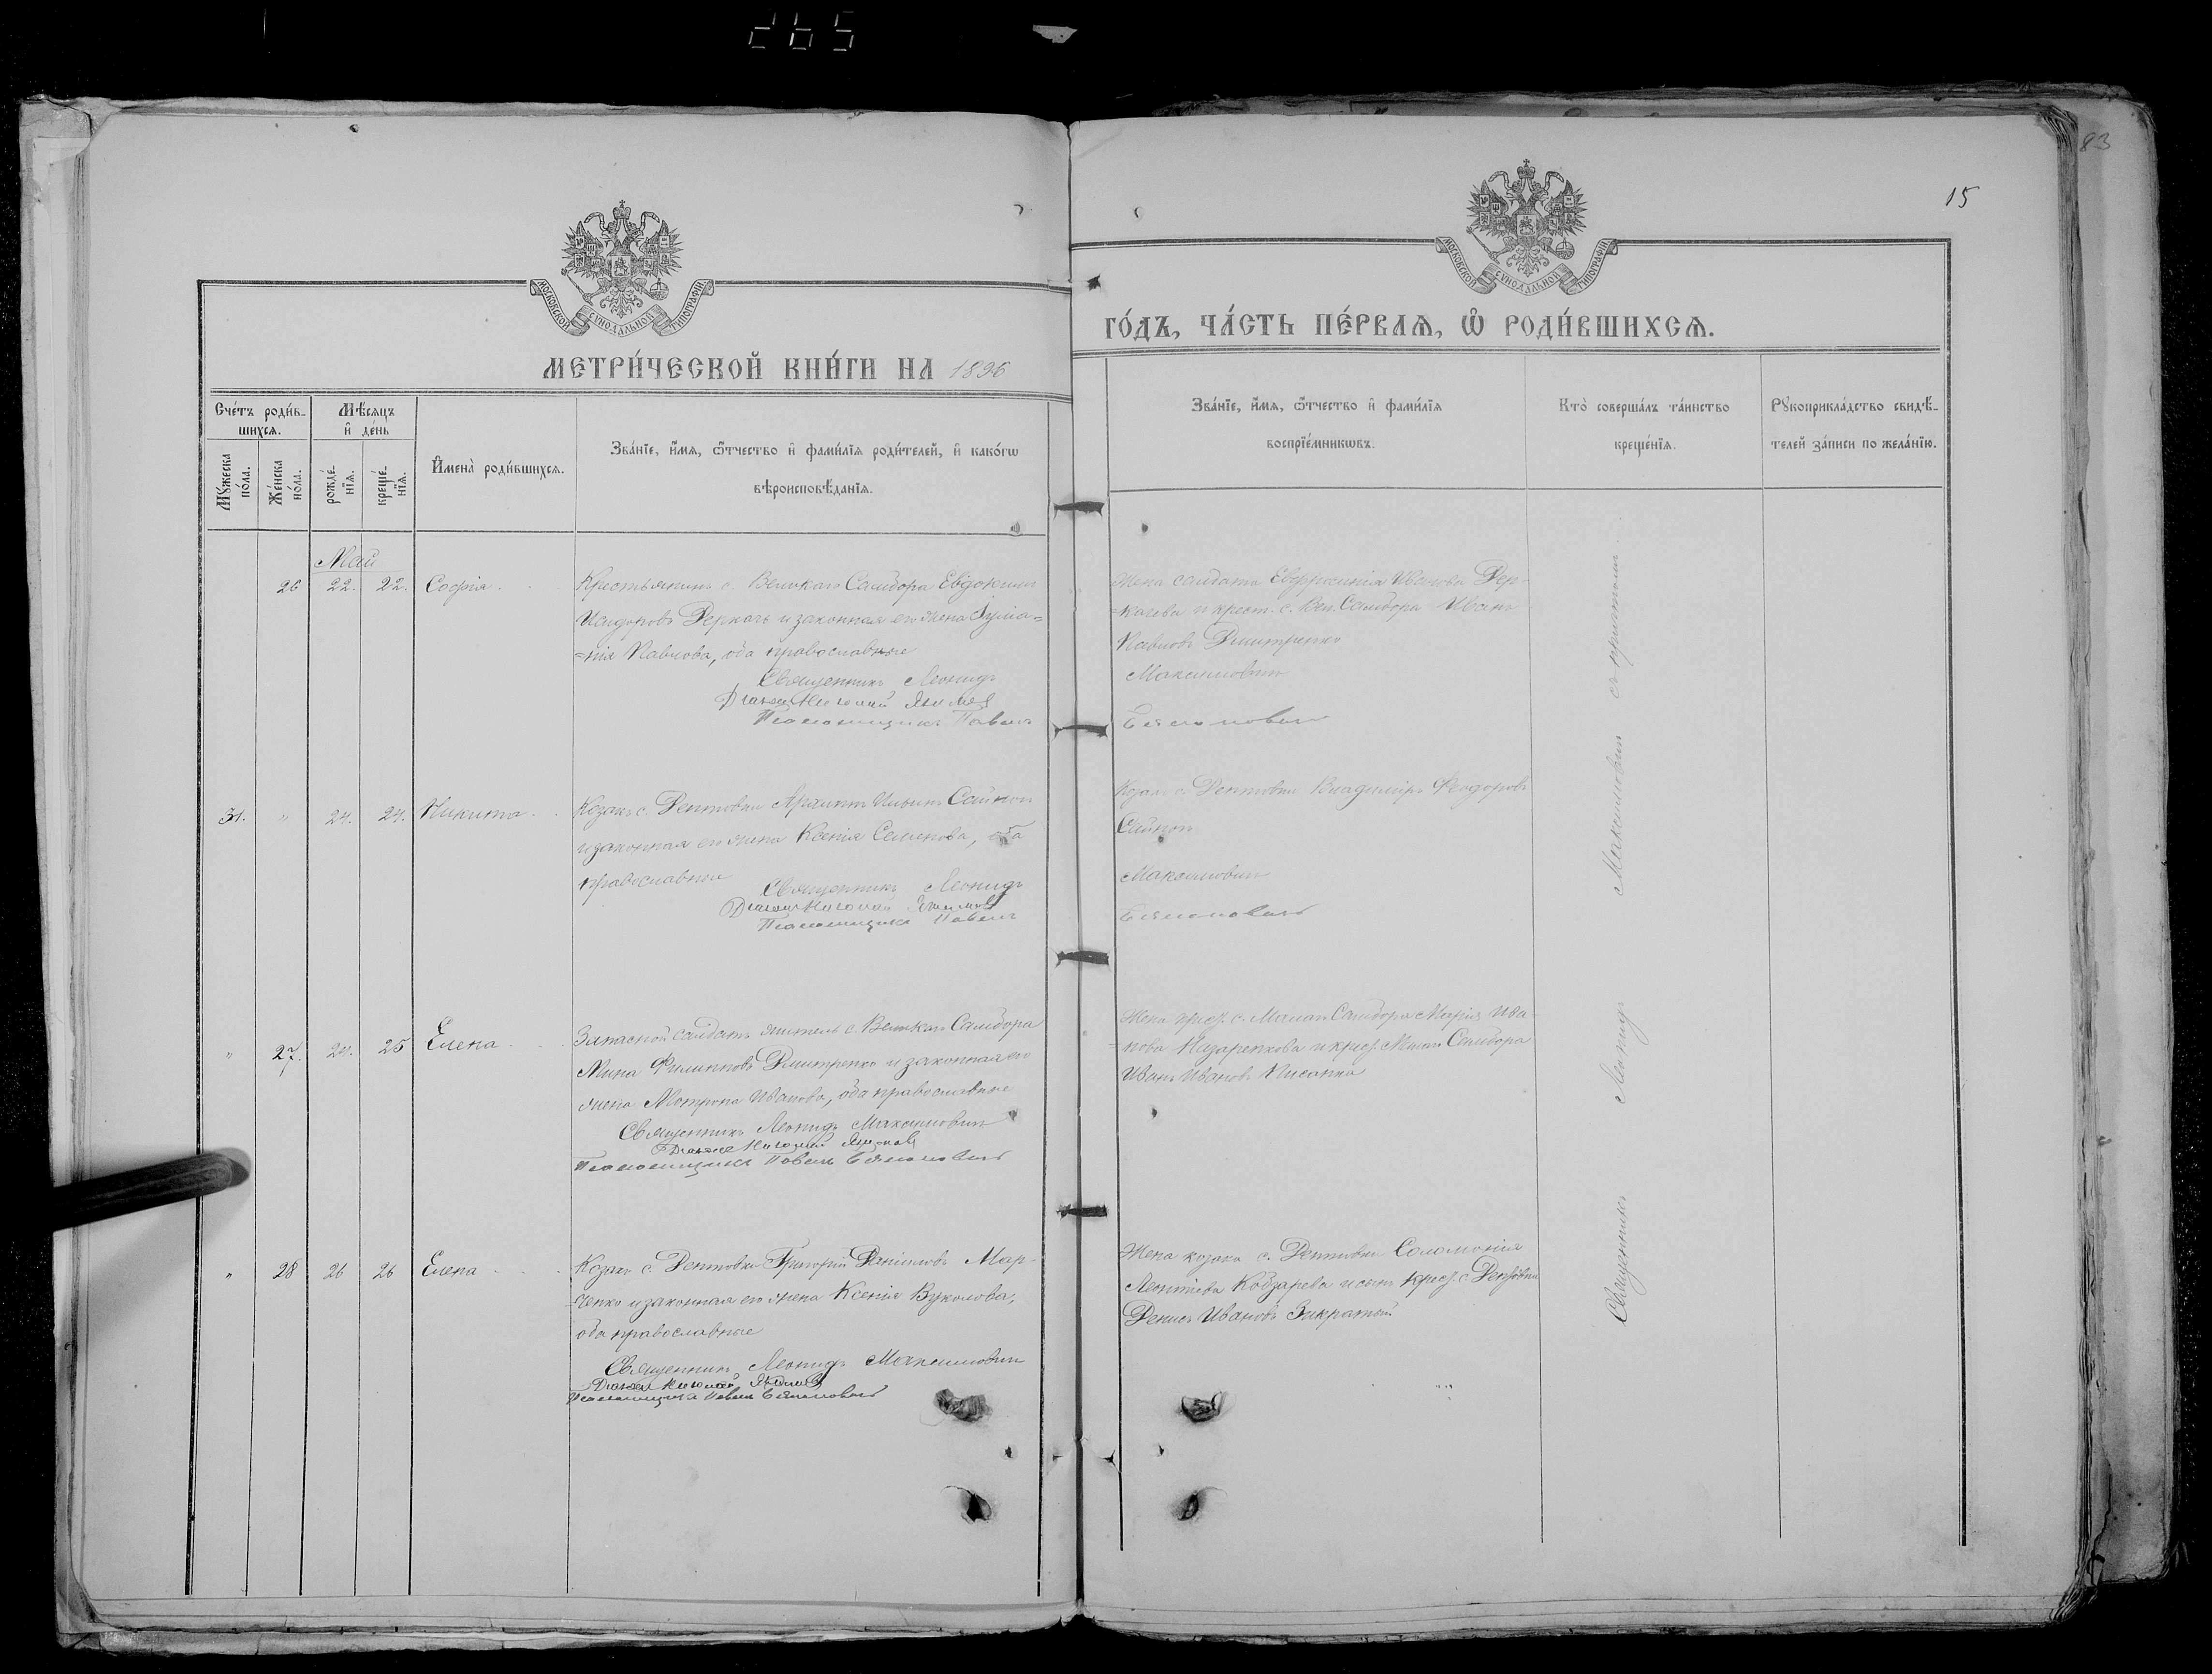 265
83
15
МОСКОВСКОЙ СѴНОДАЛЬНОЙ ТИПОГРАФІИ
МЕТРИ́ЧЕСКОЙ КНИ́ГИ НА 1896
МОСКОВСКОЙ СѴНОДАЛЬНОЙ ТИПОГРАФІИ
ГО́ДЪ, ЧА́СТЬ ПЕ́РВАѦ, Ѽ РОДИ́ВШИХСѦ.
Сче́тъ роди́в-
шихсѧ.
Мꙋ́жеска
по́ла.
Же́нска
по́ла.
Мѣ́сѧцъ
и҆ де́нь
рожде́-
нїѧ.
креще́-
нїѧ.
И҆мена̀ роди́вшихсѧ.
Зва́нїе, и҆́мѧ, ѻ҆́тчество и҆ фами́лїѧ роди́телей, и҆ како́гѡ
вѣроисповѣ́данїѧ.
Зва́нїе, и҆́мѧ, ѻ҆́тчество и҆ фами́лїѧ
воспрїе́мникѡвъ.
Кто̀ соверша́лъ та́инство
креще́нїѧ.
Рꙋкоприкла́дство свидѣ́-
телей за́писи по жела́нїю.
Май
26 22. 22. Софія
Крестьянинъ с. Великаго Самбора Евдокимъ
Исидоровъ Деркачъ и законная его жена Іулiа=
=нія Павлова, оба православные
Священникъ Леонидъ
Діаконъ Николай Якимов
Псаломщикъ Павелъ
Жена солдата Евфросинія Иванова Дер-
=качева и крест. с. Вел. Самбора Иванъ
Павловъ Дмитренко
Максимовичъ
31. " 24. 24. Никита
Козакъ с. Рептовки Ильинъ
и законная его жена Ксенія Семенова, оба
православные
Священникъ Леонидъ
Діаконъ Николай Якимов
Псаломщикъ Павелъ
Козакъ с. Рептовки Владиміръ Феодоровъ
Максимовичъ
" 27. 24. 25 Елена
Запасной солдатъ житель с. Великаго Самбора
Мина Филипповъ Дмитренко и законная его
жена Мотрона Иванова, оба православные
Священникъ Леонидъ Максимовичъ
Діаконъ Николай Якимов
Псаломщикъ Павелъ
Жена крест. с. Малаго Самбора Марія Ива-
=нова Назаренкова и крест. Малаго Самбора
Иванъ Ивановъ Писанка
" 28 26 26 Елена
Козакъ с. Рептовки Григорій Даніиловъ Мар-
=ченко и законная его жена Ксенія Вуколова,
оба православные
Священникъ Леонидъ Максимовичъ
Діаконъ Николай Якимов
Псаломщикъ Павелъ
Жена козака с. Рептовки Соломонія
Леонтіева Кобзарева и сынъ крест. с. Рептовки
Денисъ Ивановъ Закратный
Священникъ Леонидъ Максимовичъ съ причтомъ.